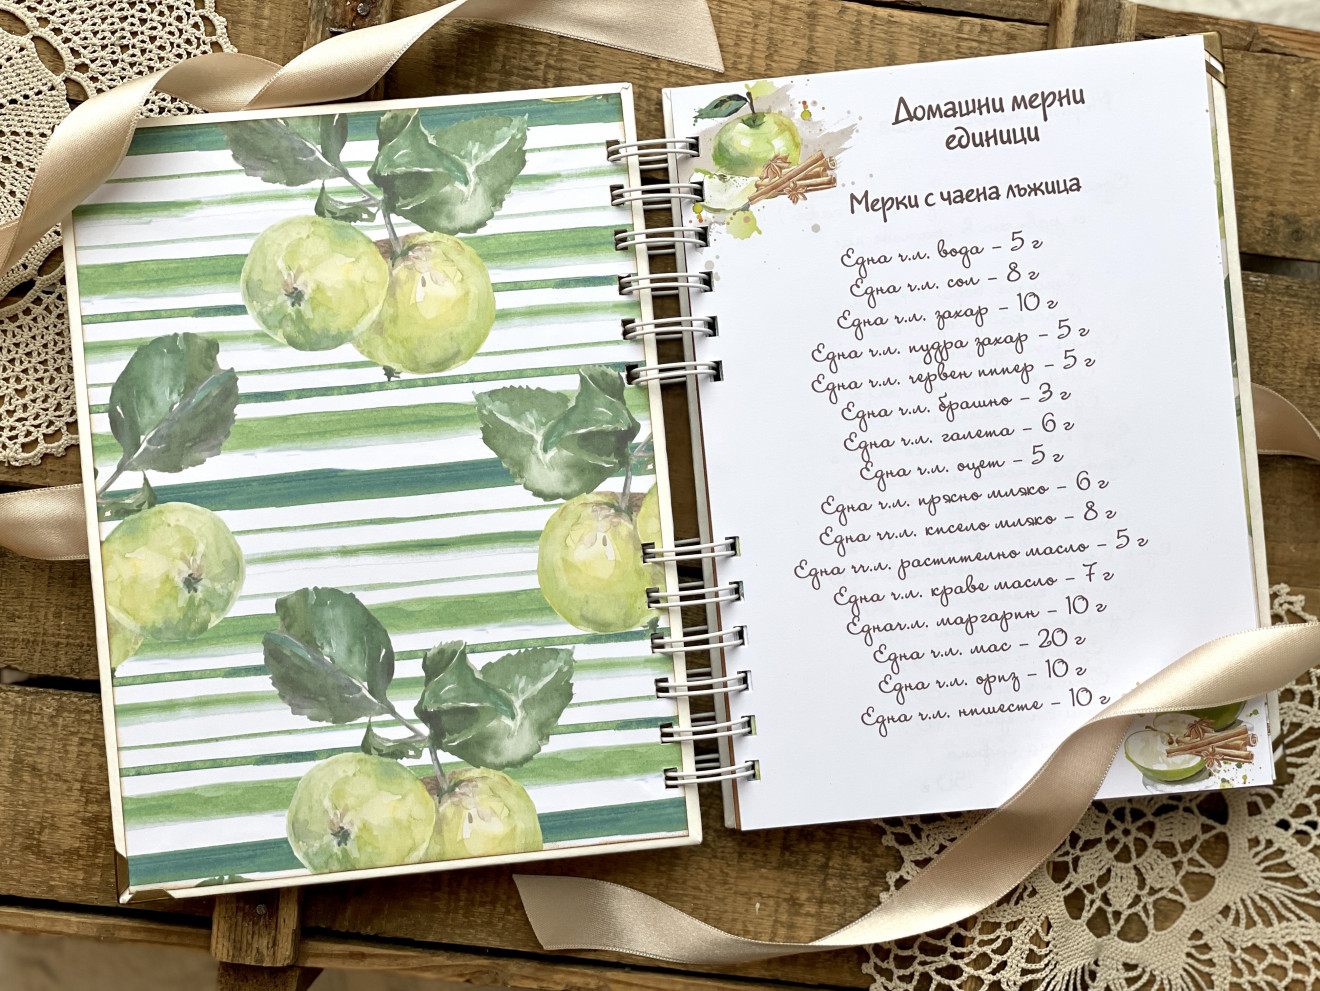 Домашни мерни
единици
Мерки с чаена лъжица
Една ч.л. вода – 5 г
Една ч.л. сол – 8 г
Една ч.л. захар – 10 г
Една ч.л. пудра захар – 5 г
Една ч.л. червен пипер – 5 г
Една ч.л. брашно – 3 г
Една ч.л. галета – 6 г
Една ч.л. оцет – 5 г
Една ч.л. прясно мляко – 6 г
Една ч.л. кисело мляко – 8 г
Една ч.л. растително масло – 5 г
Една ч.л. краве масло – 7 г
Еднач.л. маргарин – 10 г
Една ч.л. мас – 20 г
Една ч.л. ориз – 10 г
Една ч.л. нишесте – 10 г